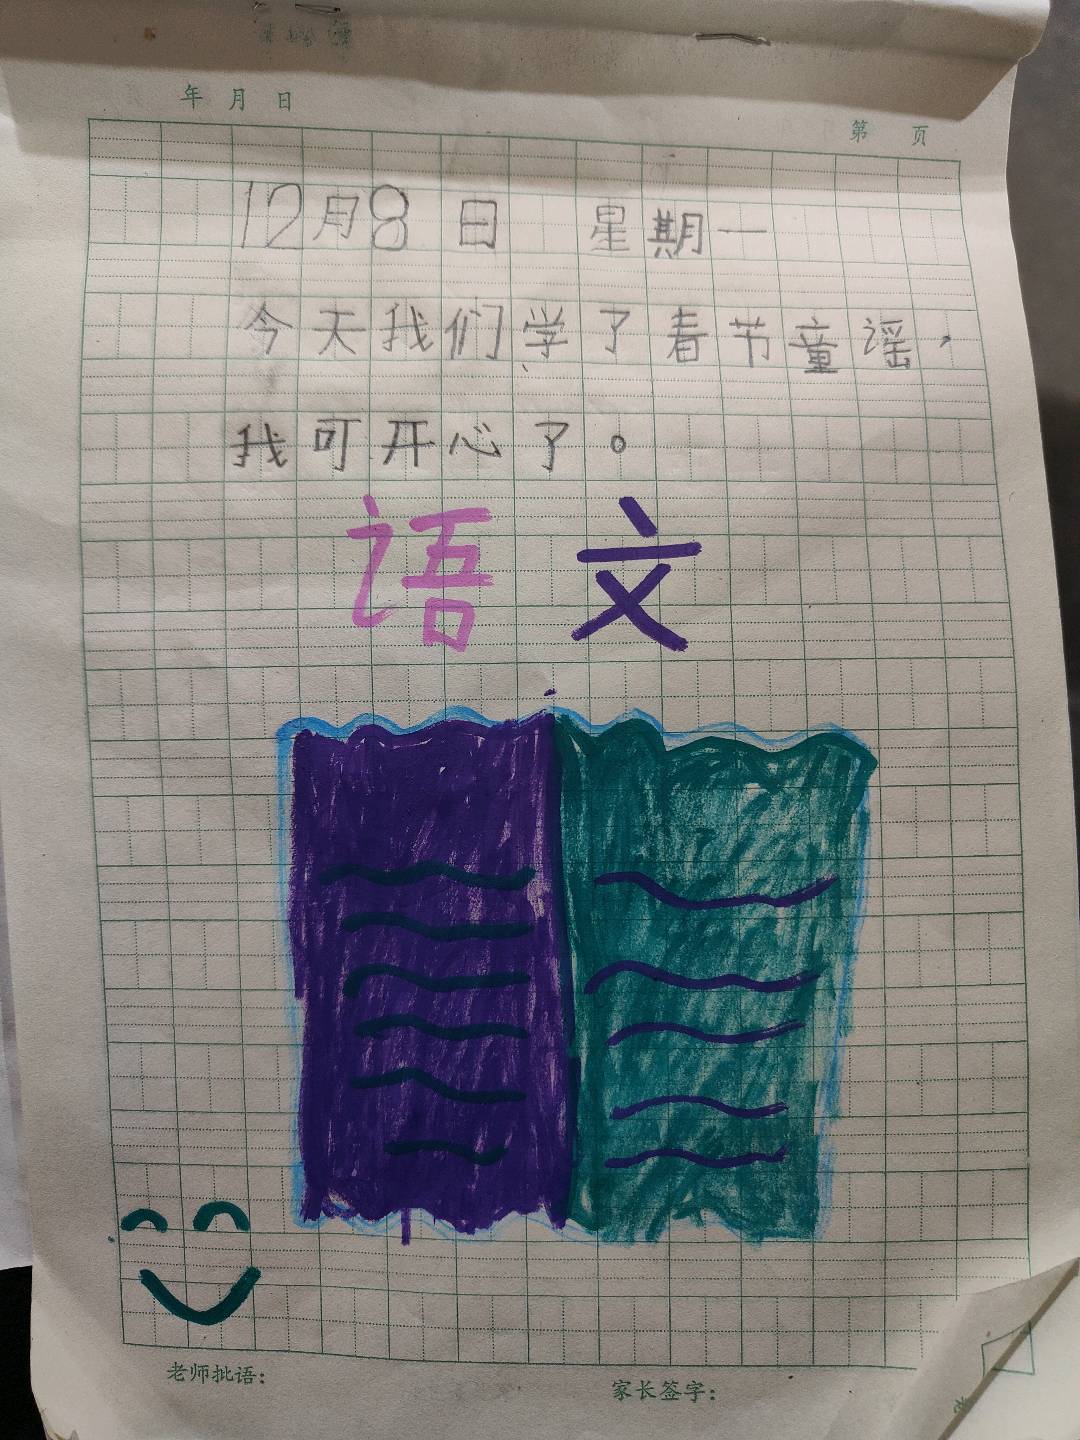 年 月 日
第 页
12月8日 星期一
今天我们学了春节童谣，
我可开心了。
语文
老师批语：
家长签字：